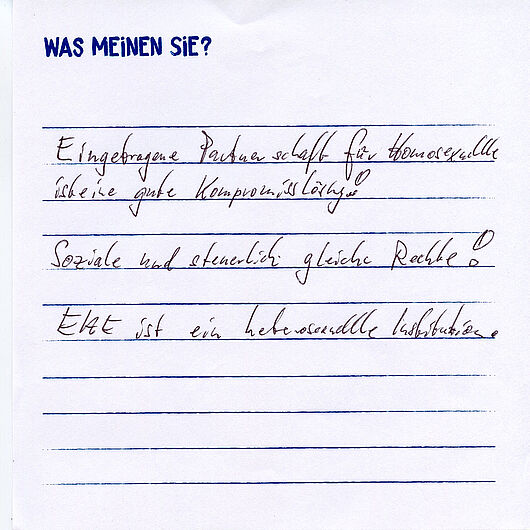 WAS MEINEN SIE?
Eingetragene Partnerschaft für Homosexuelle
ist eine gute Kompromisslösung!
Soziale und steuerlich gleiche Rechte!
EHE ist ein heterosexuelle Institution.